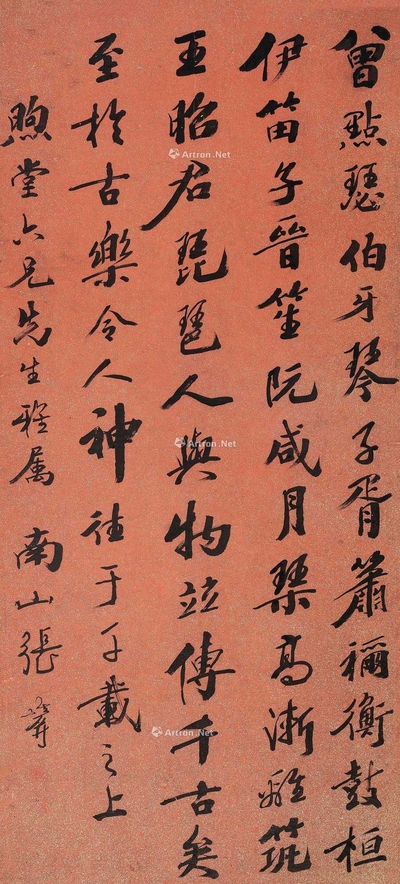 曾點瑟伯牙琴子胥簫禰衡鼓桓
伊笛子晉笙阮咸月琴高漸離筑
王昭君琵琶人與物竝傳千古矣
至於古樂令人神往于千載之上
煦堂六兄先生雅屬 南山張
Artron.Net
Artron.Net
Artron.Net